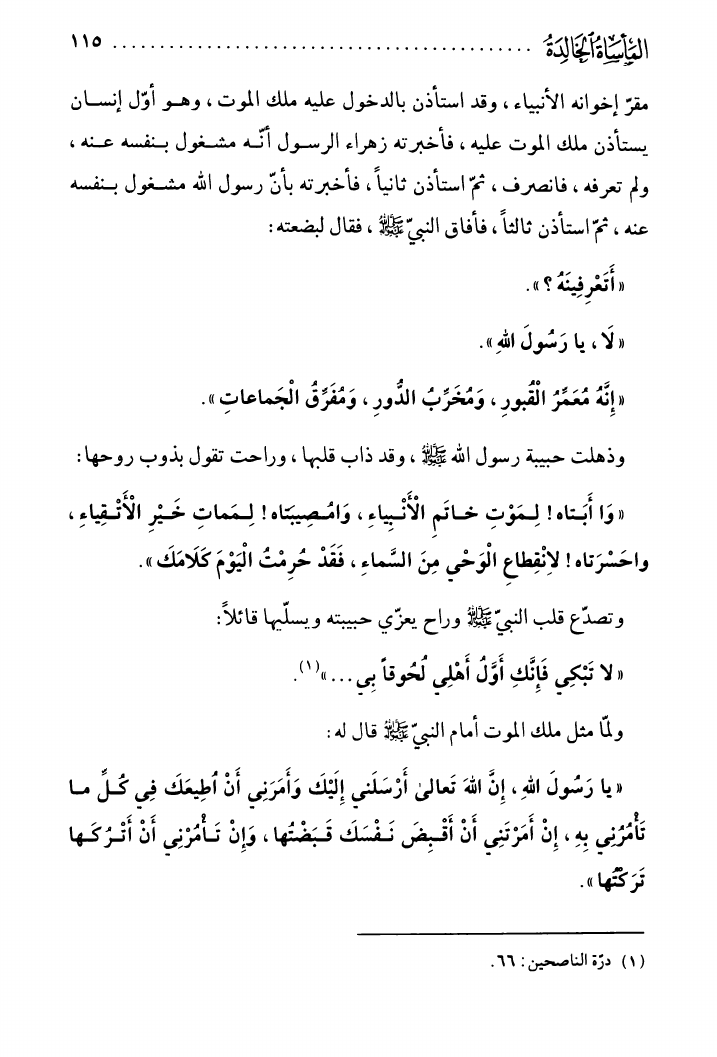 المأساة الخالدة ............................................ ١١٥
مقرّ إخوانه الأنبياء ، وقد استأذن بالدخول عليه ملك الموت ، وهـو أوّل إنسـان
يستأذن ملك الموت عليه ، فأخبرته زهراء الرسـول أنّـه مشـغول بـنفسه عـنه ،
ولم تعرفه ، فانصرف ، ثمّ استأذن ثانياً ، فأخبرته بأنّ رسول الله مشغول بـنفسه
عنه ، ثمّ استأذن ثالثاً ، فأفاق النبيّ ﷺ ، فقال لبضعته:
«أَتَعْرِفِينَهُ ؟».
«لَا ، يا رَسُولَ اللهِ».
«إِنَّهُ مُعَمِّرُ الْقُبورِ ، وَمُخَرِّبُ الدُّورِ ، وَمُفَرِّقُ الْجَماعاتِ».
وذهلت حبيبة رسول الله ﷺ ، وقد ذاب قلبها ، وراحت تقول بذوب روحها:
«وَا أَبَتاه! لِـمَوْتِ خـاتَمِ الْأَنْـبِياءِ ، وَامُـصِيبَتاه! لِـمَماتِ خَـيْرِ الْأَتْـقِياءِ ،
واحَسْرَتاه! لاِنْقِطاعِ الْوَحْي مِنَ السَّماءِ ، فَقَدْ حُرِمْتُ الْيَوْمَ كَلَامَكَ».
وتصدّع قلب النبيّ ﷺ وراح يعزّي حبيبته ويسلّيها قائلاً:
«لا تَبْكِي فَإِنَّكِ أَوَّلُ أَهْلِي لُحُوقاً بِي...»(١).
ولمّا مثل ملك الموت أمام النبيّ ﷺ قال له:
«يا رَسُولَ اللهِ ، إِنَّ اللهَ تَعالىٰ أَرْسَلَني إِلَيْكَ وَأَمَرَنِي أَنْ أُطِيعَكَ فِي كُـلِّ مـا
تَأْمُرُنِي بِهِ ، إِنْ أَمَرْتَنِي أَنْ أَقْـبِضَ نَـفْسَكَ قَـبَضْتُها ، وَإِنْ تَـأْمُرْنِي أَنْ أَتْـرُكَـها
تَرَكْتُها».
(١) درّة الناصحين: ٦٦.